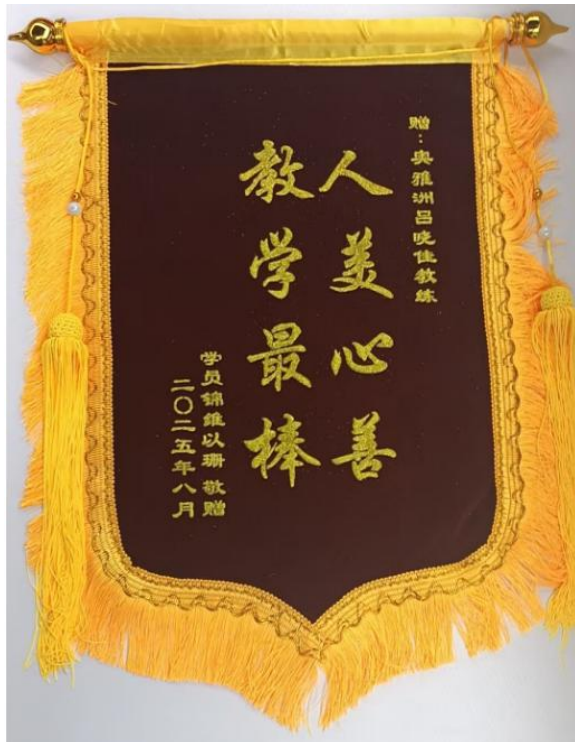 赠：奥雅洲吕晓佳教练
人美心善
教学最棒
学员锦维以珊 敬赠
二〇二五年八月